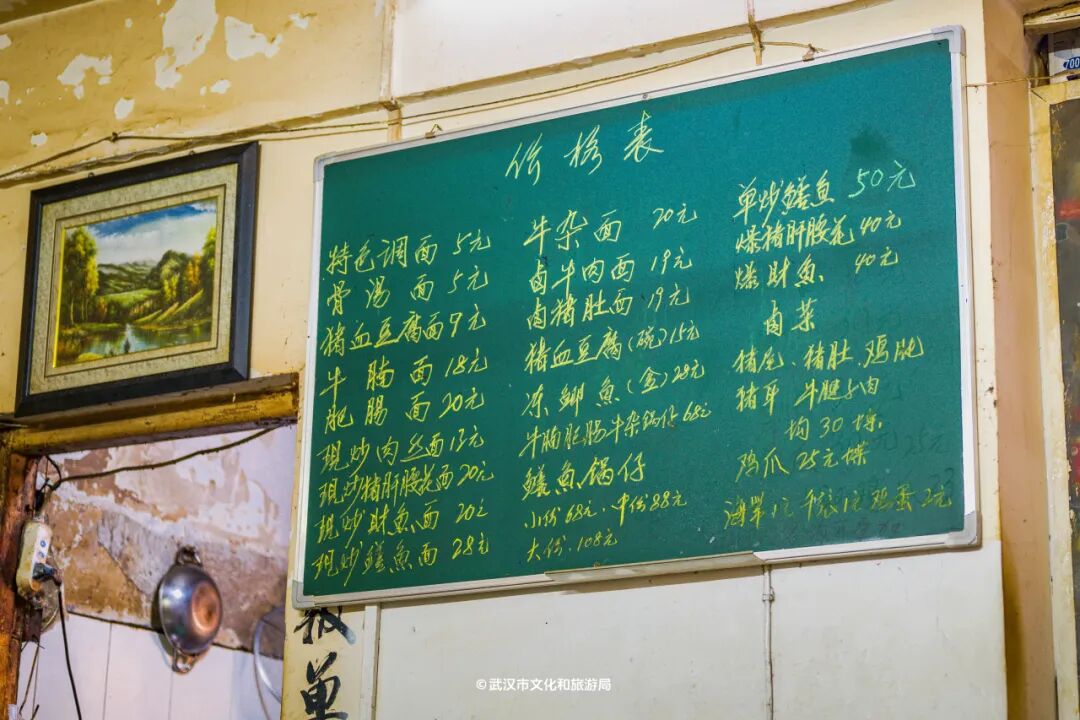 价格表
特色调面 5元
骨汤面 5元
猪血豆腐面 9元
牛腩面 18元
肥肠面 20元
现炒肉丝面 13元
现炒猪肝腰花面 20元
现炒财魚面 20元
现炒鳝魚面 28元
牛杂面 20元
卤牛肉面 19元
卤猪肚面 19元
猪血豆腐(碗)15元
冻鲫魚(盒)28元
牛腩肥肠牛杂锅仔 68元
鳝魚锅仔
小份68元. 中份88元
大份.108元
单炒鳝魚 50元
爆猪肝腰花 40元
爆财魚 40元
卤菜
猪尾、猪肚、鸡肫
猪耳 牛腱子肉
均30 碟.
鸡爪 25元碟
海带1元 干张1元 鸡蛋2元
报单
©武汉市文化和旅游局
700